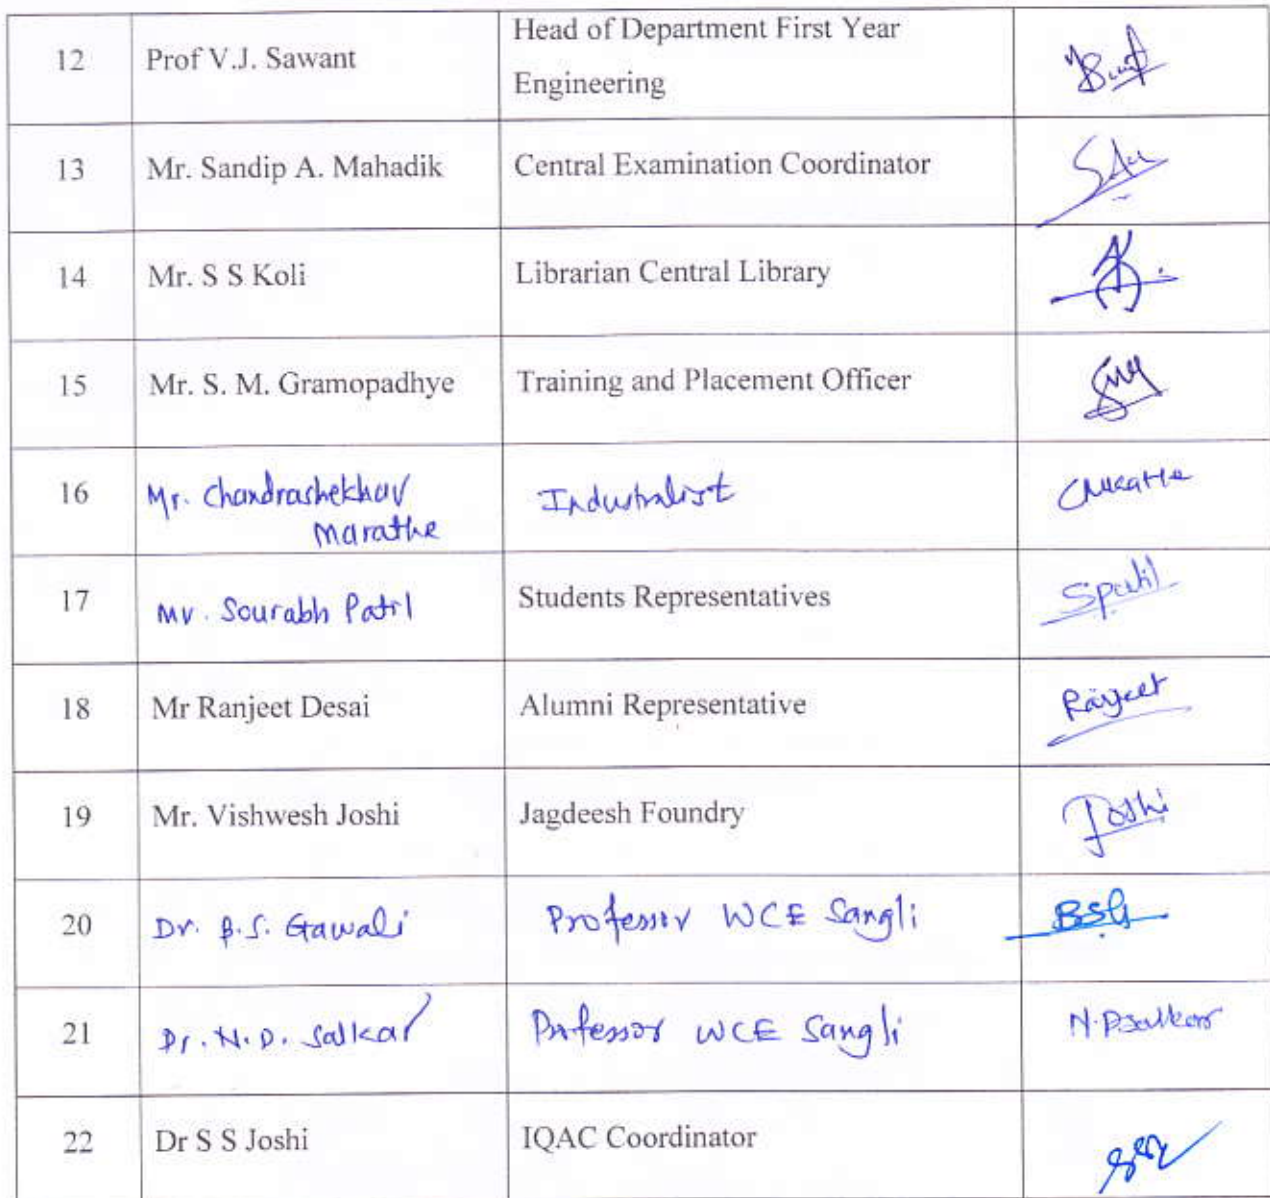 12 Prof V.J. Sawant Head of Department First Year
Engineering
13 Mr. Sandip A. Mahadik Central Examination Coordinator
14 Mr. S S Koli Librarian Central Library
15 Mr. S. M. Gramopadhye Training and Placement Officer
16 Mr. Chandrashekhar Industralist CMarathe
Marathe
17 Mr. Sourabh Patil Students Representatives SPatil
18 Mr Ranjeet Desai Alumni Representative Ranjeet
19 Mr. Vishwesh Joshi Jagdeesh Foundry Joshi
20 Dr. B.S. Gawali Professor WCE Sangli BSG
21 Dr. N. D. Salkar Professor WCE Sangli
22 Dr S S Joshi IQAC Coordinator